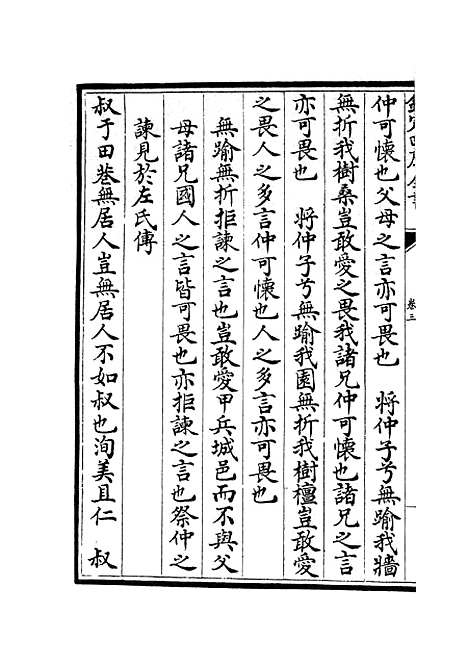 仲可懷也父母之言亦可畏也　將仲子兮無踰我牆
無折我樹桑豈敢愛之畏我諸兄仲可懷也諸兄之言
亦可畏也　將仲子兮無踰我園無折我樹檀豈敢愛
之畏人之多言仲可懷也人之多言亦可畏也
無踰無折拒諫之言也豈敢愛甲兵城邑而不與父
母諸兄國人之言皆可畏也亦拒諫之言也祭仲之
諫見於左氏傳
叔于田巷無居人豈無居人不如叔也洵美且仁　叔
卷三